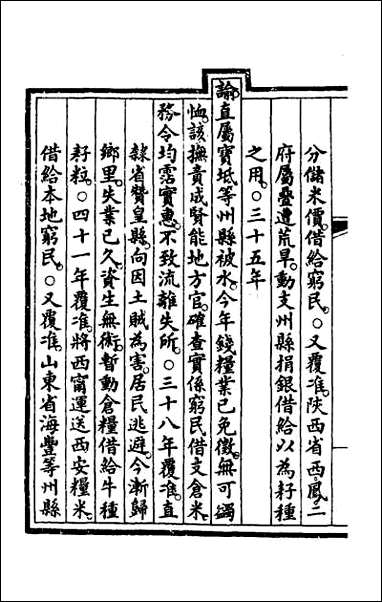 分儲米價。借給窮民。○又覆准。陝西省西。鳳二
府屬疊遭荒旱。動支州縣捐銀借給以為籽種
之用。○三十五年
諭直屬寶坻等州縣被水。今年錢糧業已免徵。無可蠲
恤。該撫責成賢能地方官。確查實係窮民借支倉米。
務令均霑實惠。不致流離失所。○三十八年覆准。直
隸省贊皇縣。向因土賊為害。居民逃避。今漸歸
鄉里。失業已久。資生無術。暫動倉糧借給牛種
籽粒。○四十一年覆准。將西甯運送西安糧米。
借給本地窮民。○又覆准。山東省海豐等州縣